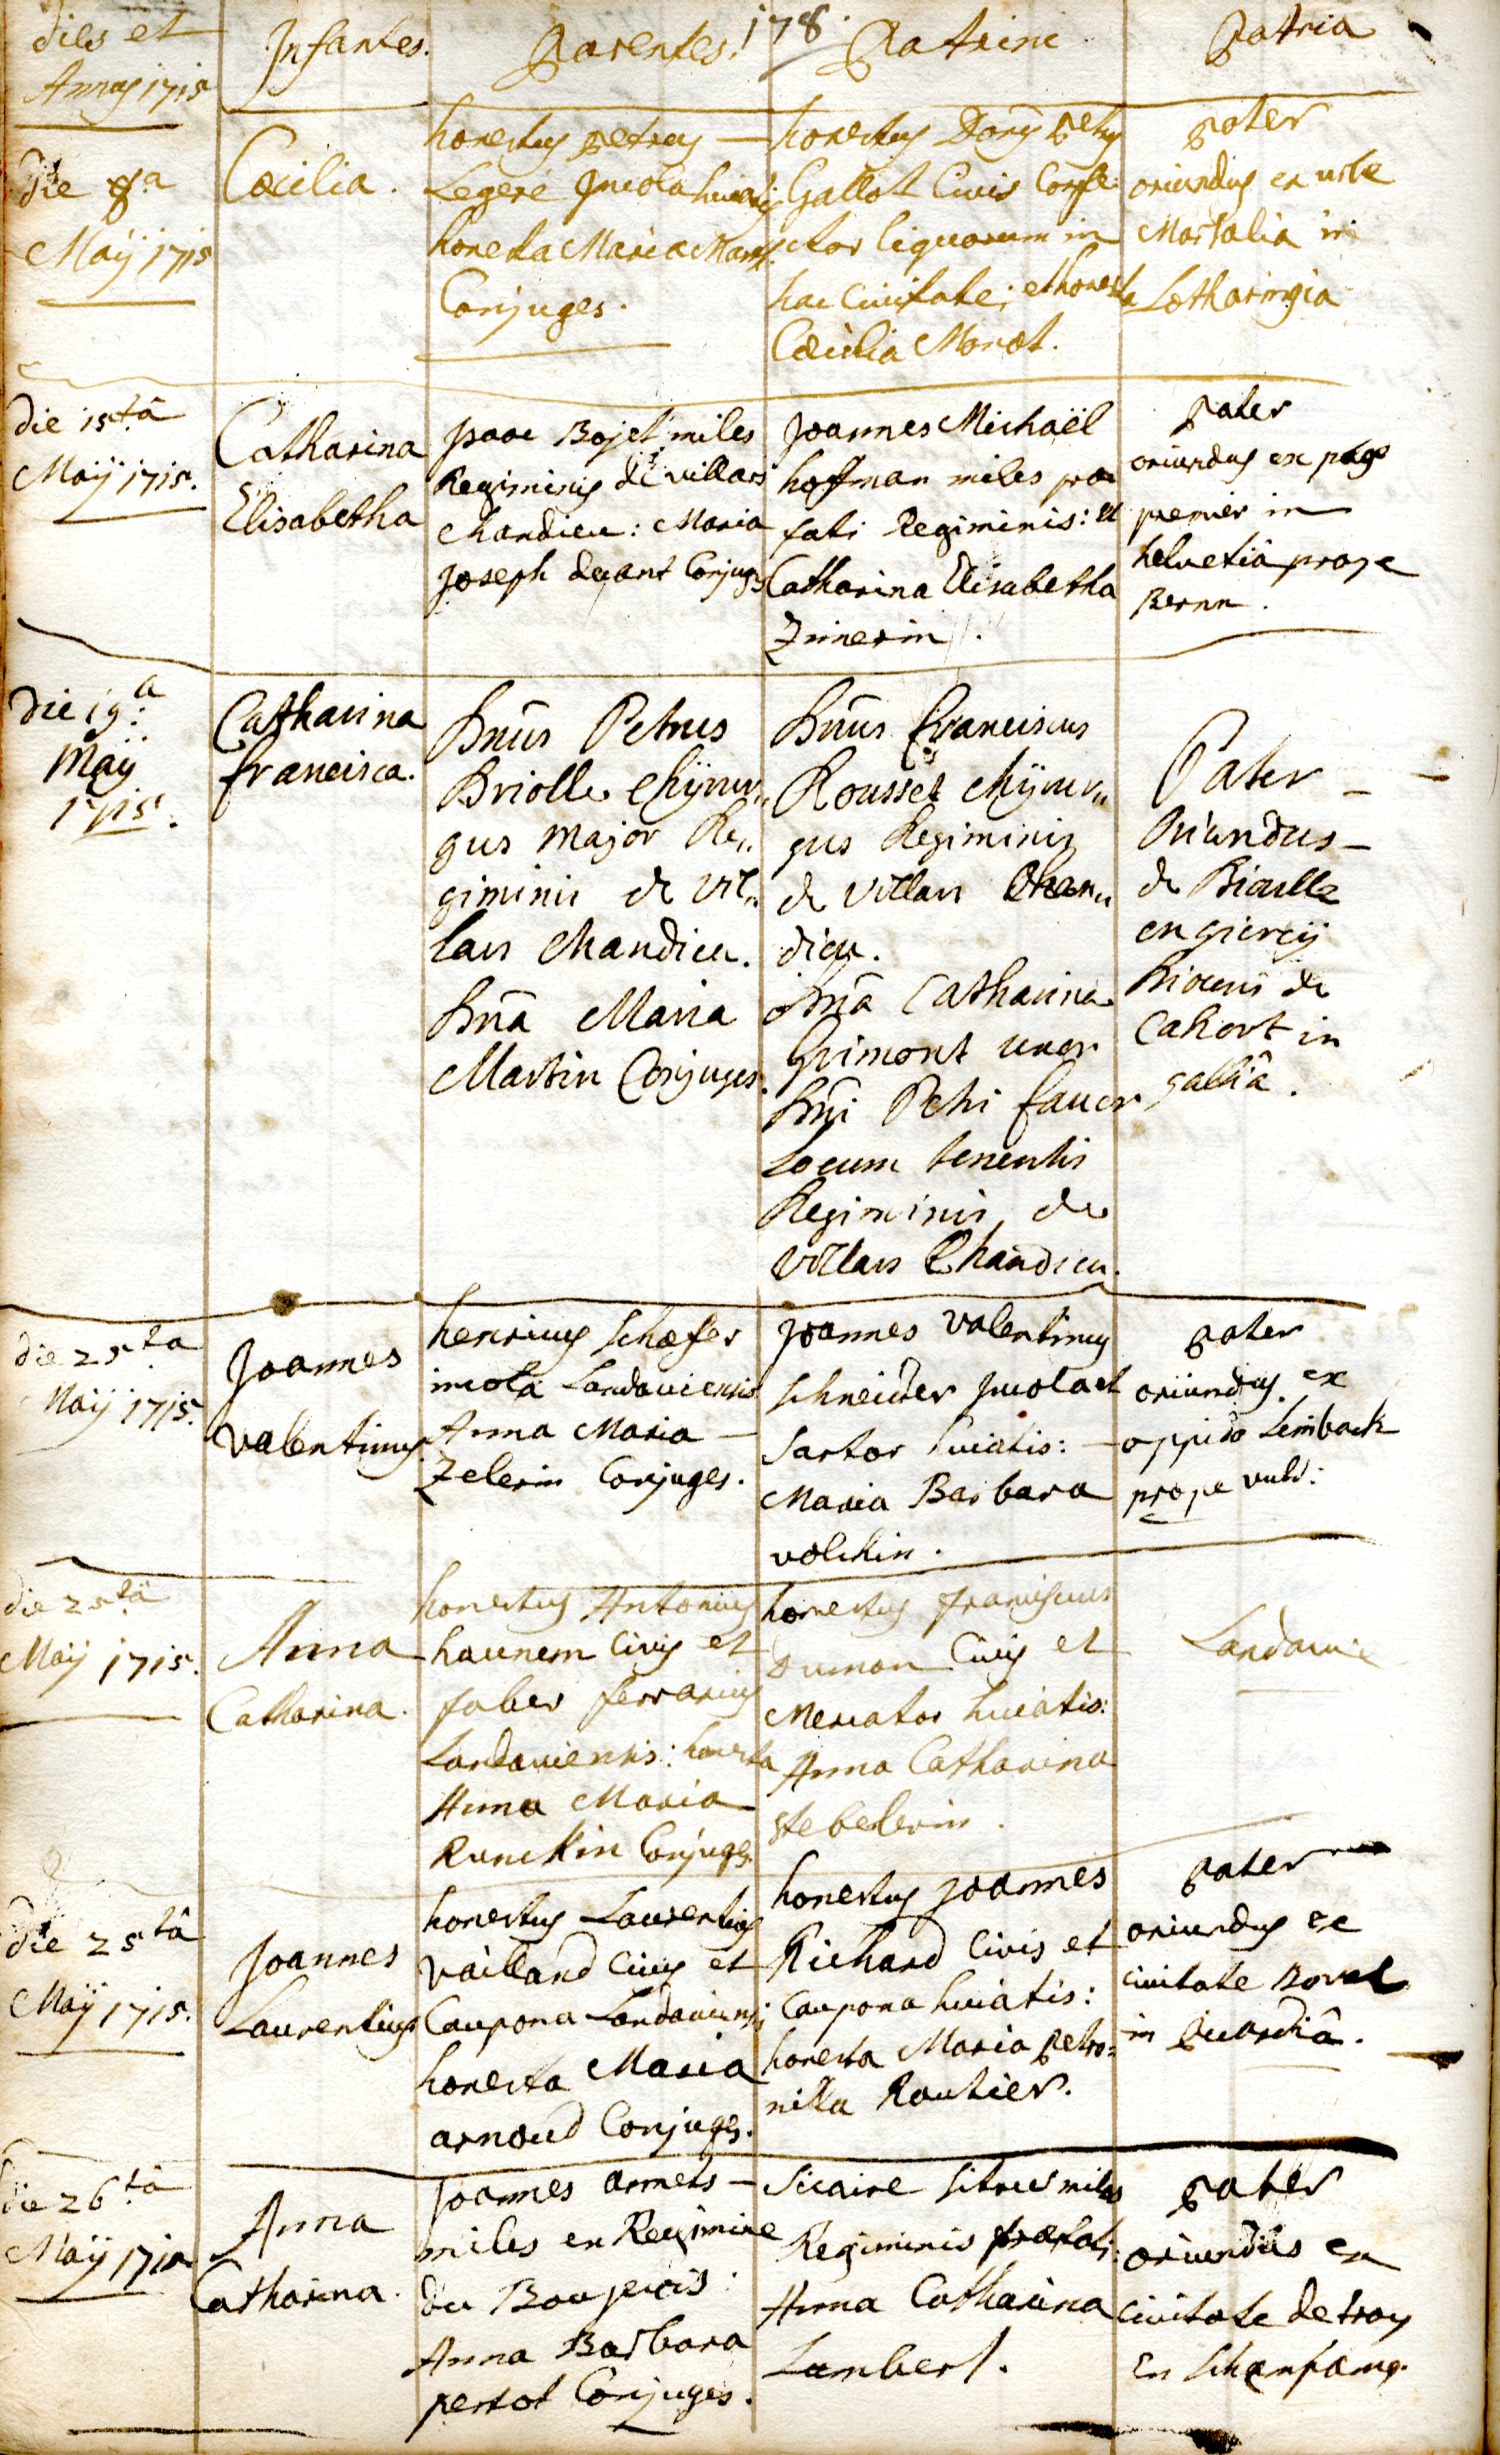 178.
dies et
Annus 1715
Infantes.
Parentes.
Patrini
Patria
Die 8a
Maÿ 1715
Cæcilia.
honestus petrus —
Legeré Incola huias:
honesta Maria
Conjuges.
honestus petrus
Gallot Civis Confe
ctor liquorum in
hac Civitate; et honesta
Cæcilia Morot.
pater
oriundus ex urbe
Marsalia in
Lotharingia
die 15tâ
Maÿ 1715.
Catharina
Elisabetha
Isaac Bojet miles
Regiminis de villars
chandieu: Maria
Joseph Conjuges
Joannes Michaël
hoffman miles præ
fati Regiminis: et
Catharina Elisabetha
Zimerin.
pater
oriundus ex pago
premier in
helvetiâ prope
Bernn.
die 19.a
Maÿ
1715.
Catharina
francisca.
Dnūs Petrus
Briolle Chÿrur„
gus Major Re„
giminis de Vil„
lars Chandieu.
Dnā Maria
Martin Conjuges.
Dnūs Franciscus
Rousset Chÿrur„
gus Regiminis
de Villars Chan„
dieu.
Dnā Catharina
Grimont uxor
Dni Petri faver
Locum tenentis
Regiminis de
Villars Chandieu.
Pater —
Oriundus —
de
en
de
Cahort in
galliâ.
die 25ta
Maÿ 1715.
Joannes
valentinus.
henricus schæfer
incola Landaviensis
Anna Maria —
Zelerin Conjuges.
Joannes valentinus
schneider Incola et
sartor huiatis: —
Maria Barbara
volckin.
pater
oriundus ex
oppido Limback
prope
die 25tâ
Maÿ 1715.
Anna
Catharina.
honestus Antonius
haunem Civis et
faber ferrarius
Landaviensis: honesta
Anna Maria
Runckin Conjuges.
honestus franciscus
Dumon Civis et
Mercator huiatis:
Anna Catharina
stebelerin.
Landaviæ
die 25tâ
Maÿ 1715.
Joannes
Laurentius
honestus Laurentius
Vailland Civis et
Caupona Landaviensis
honesta Maria
arnoud Conjuges.
honestus Joannes
Richard Civis et
Caupona huiatis:
honesta Maria petro=
nilla Routier.
pater
oriundus ex
civitate
in picardiâ.
die 26tâ
Maÿ 1715
Anna
Catharina.
Joannes —
miles en Regimine
du
Anna Barbara
pertot Conjuges.
Sicaire miles
Regiminis præfati:
Anna Catharina
Lambert.
pater
oriundus ex
civitate de troy
en